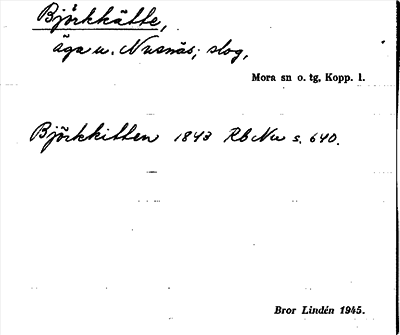 Björkkätte,
äga u. Nusnäs; slog,
Mora sn o. tg, Kopp. l.
Björkkitten 1843 Rb Nu s. 640.
Bror Lindén 1945.